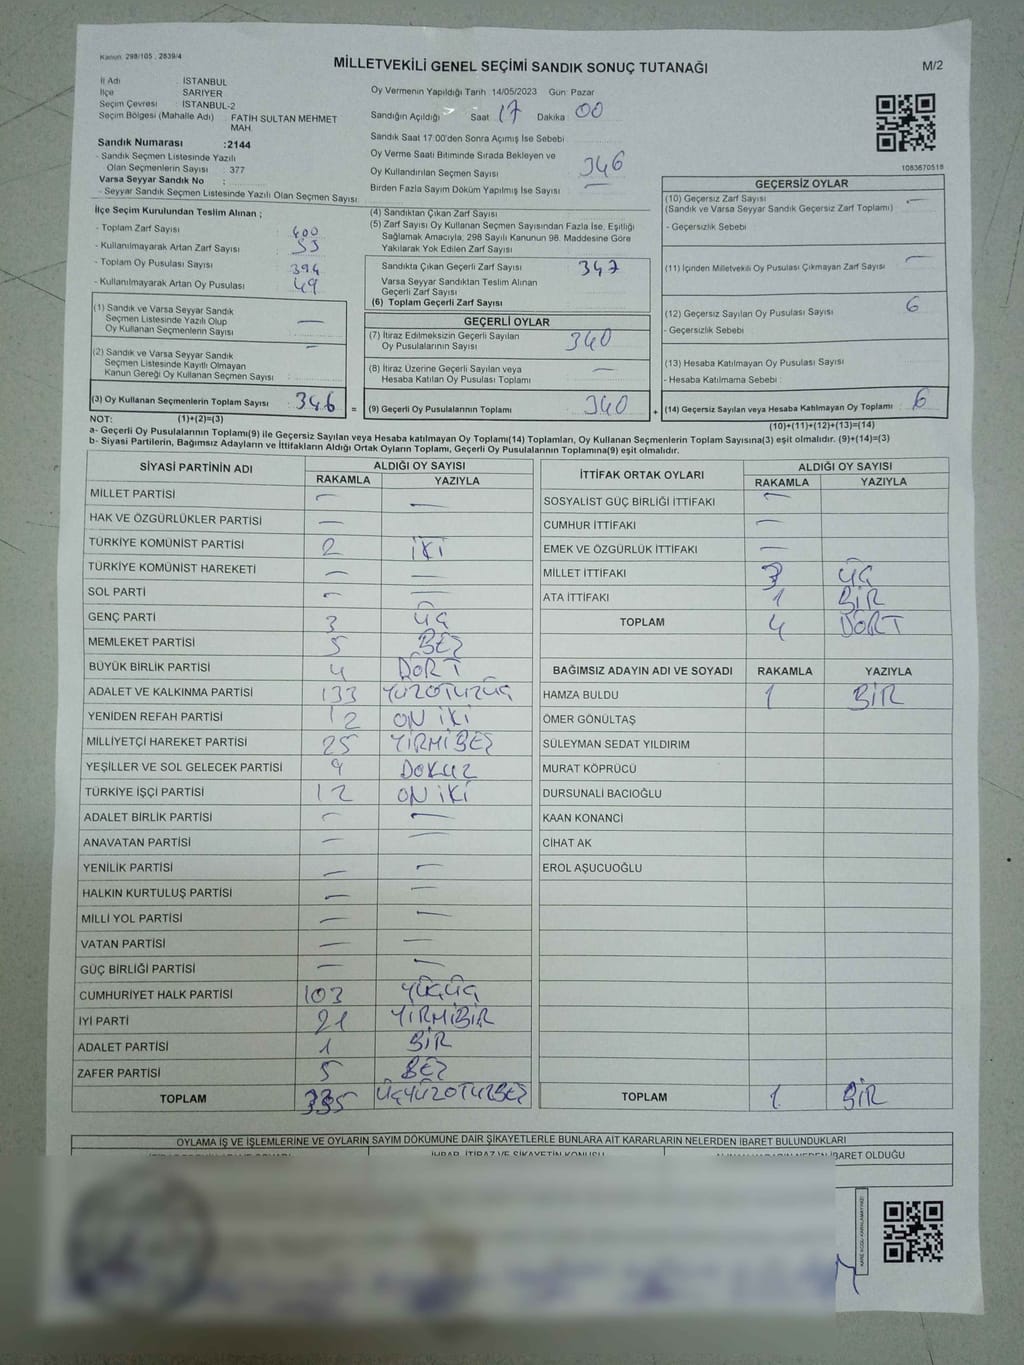 Kanun 298/105, 2839/4
MİLLETVEKİLİ GENEL SEÇİMİ SANDIK SONUÇ TUTANAĞI
M/2
İl Adı : İSTANBUL
İlçe : SARIYER
Seçim Çevresi : İSTANBUL-2
Seçim Bölgesi (Mahalle Adı) : FATİH SULTAN MEHMET
MAH.
Sandık Numarası :2144
- Sandık Seçmen Listesinde Yazılı
Olan Seçmenlerin Sayısı : 377
Varsa Seyyar Sandık No :
- Seyyar Sandık Seçmen Listesinde Yazılı Olan Seçmen Sayısı:
Oy Vermenin Yapıldığı Tarih 14/05/2023 Gün: Pazar
Sandığın Açıldığı Saat 17 Dakika 00
Sandık Saat 17:00'den Sonra Açılmış İse Sebebi
Oy Verme Saati Bitiminde Sırada Bekleyen ve
Oy Kullandırılan Seçmen Sayısı 346
Birden Fazla Sayım Döküm Yapılmış İse Sayısı —
1083670518
İlçe Seçim Kurulundan Teslim Alınan ;
- Toplam Zarf Sayısı 400
- Kullanılmayarak Artan Zarf Sayısı 53
- Toplam Oy Pusulası Sayısı 394
- Kullanılmayarak Artan Oy Pusulası 49
(1) Sandık ve Varsa Seyyar Sandık
Seçmen Listesinde Yazılı Olup
Oy Kullanan Seçmenlerin Sayısı —
(2) Sandık ve Varsa Seyyar Sandık
Seçmen Listesinde Kayıtlı Olmayan
Kanun Gereği Oy Kullanan Seçmen Sayısı —
(3) Oy Kullanan Seçmenlerin Toplam Sayısı 346 =
(4) Sandıktan Çıkan Zarf Sayısı
(5) Zarf Sayısı Oy Kullanan Seçmen Sayısından Fazla İse, Eşitliği
Sağlamak Amacıyla, 298 Sayılı Kanunun 98. Maddesine Göre
Yakılarak Yok Edilen Zarf Sayısı
Sandıkta Çıkan Geçerli Zarf Sayısı 347
Varsa Seyyar Sandıktan Teslim Alınan
Geçerli Zarf Sayısı
(6) Toplam Geçerli Zarf Sayısı
GEÇERLİ OYLAR
(7) İtiraz Edilmeksizin Geçerli Sayılan
Oy Pusulalarının Sayısı 340
(8) İtiraz Üzerine Geçerli Sayılan veya
Hesaba Katılan Oy Pusulası Toplamı —
(9) Geçerli Oy Pusulalarının Toplamı 340 +
GEÇERSİZ OYLAR
(10) Geçersiz Zarf Sayısı —
(Sandık ve Varsa Seyyar Sandık Geçersiz Zarf Toplamı)
- Geçersizlik Sebebi
(11) İçinden Milletvekili Oy Pusulası Çıkmayan Zarf Sayısı —
(12) Geçersiz Sayılan Oy Pusulası Sayısı 6
- Geçersizlik Sebebi
(13) Hesaba Katılmayan Oy Pusulası Sayısı
- Hesaba Katılmama Sebebi :
(14) Geçersiz Sayılan veya Hesaba Katılmayan Oy Toplamı 6
NOT: (1)+(2)=(3)
(10)+(11)+(12)+(13)=(14)
a- Geçerli Oy Pusulalarının Toplamı(9) ile Geçersiz Sayılan veya Hesaba katılmayan Oy Toplamı(14) Toplamları, Oy Kullanan Seçmenlerin Toplam Sayısına(3) eşit olmalıdır. (9)+(14)=(3)
b- Siyasi Partilerin, Bağımsız Adayların ve İttifakların Aldığı Ortak Oyların Toplamı, Geçerli Oy Pusulalarının Toplamına(9) eşit olmalıdır.
SİYASİ PARTİNİN ADI ALDIĞI OY SAYISI
RAKAMLA YAZIYLA
MİLLET PARTİSİ — —
HAK VE ÖZGÜRLÜKLER PARTİSİ —
TÜRKİYE KOMÜNİST PARTİSİ 2 İKİ
TÜRKİYE KOMÜNİST HAREKETİ — —
SOL PARTİ — —
GENÇ PARTİ 3 ÜÇ
MEMLEKET PARTİSİ 5 BEŞ
BÜYÜK BİRLİK PARTİSİ 4 DÖRT
ADALET VE KALKINMA PARTİSİ 133 YÜZOTUZÜÇ
YENİDEN REFAH PARTİSİ 12 ON İKİ
MİLLİYETÇİ HAREKET PARTİSİ 25 YİRMİBEŞ
YEŞİLLER VE SOL GELECEK PARTİSİ 9 DOKUZ
TÜRKİYE İŞÇİ PARTİSİ 12 ON İKİ
ADALET BİRLİK PARTİSİ — —
ANAVATAN PARTİSİ — —
YENİLİK PARTİSİ — —
HALKIN KURTULUŞ PARTİSİ — —
MİLLİ YOL PARTİSİ — —
VATAN PARTİSİ — —
GÜÇ BİRLİĞİ PARTİSİ — —
CUMHURİYET HALK PARTİSİ 103 YÜZÜÇ
İYİ PARTİ 21 YİRMİBİR
ADALET PARTİSİ 1 BİR
ZAFER PARTİSİ 5 BEŞ
TOPLAM 335 ÜÇYÜZOTUZBEŞ
İTTİFAK ORTAK OYLARI ALDIĞI OY SAYISI
RAKAMLA YAZIYLA
SOSYALİST GÜÇ BİRLİĞİ İTTİFAKI —
CUMHUR İTTİFAKI —
EMEK VE ÖZGÜRLÜK İTTİFAKI —
MİLLET İTTİFAKI 3 ÜÇ
ATA İTTİFAKI 1 BİR
TOPLAM 4 DÖRT
BAĞIMSIZ ADAYIN ADI VE SOYADI RAKAMLA YAZIYLA
HAMZA BULDU 1 BİR
ÖMER GÖNÜLTAŞ
SÜLEYMAN SEDAT YILDIRIM
MURAT KÖPRÜCÜ
DURSUNALİ BACIOĞLU
KAAN KONANCİ
CİHAT AK
EROL AŞUCUOĞLU
TOPLAM 1 BİR
OYLAMA İŞ VE İŞLEMLERİNE VE OYLARIN SAYIM DÖKÜMÜNE DAİR ŞİKAYETLERLE BUNLARA AİT KARARLARIN NELERDEN İBARET BULUNDUKLARI
İHBAR, İTİRAZ VE ŞİKAYETİN KONUSU
İBARET OLDUĞU